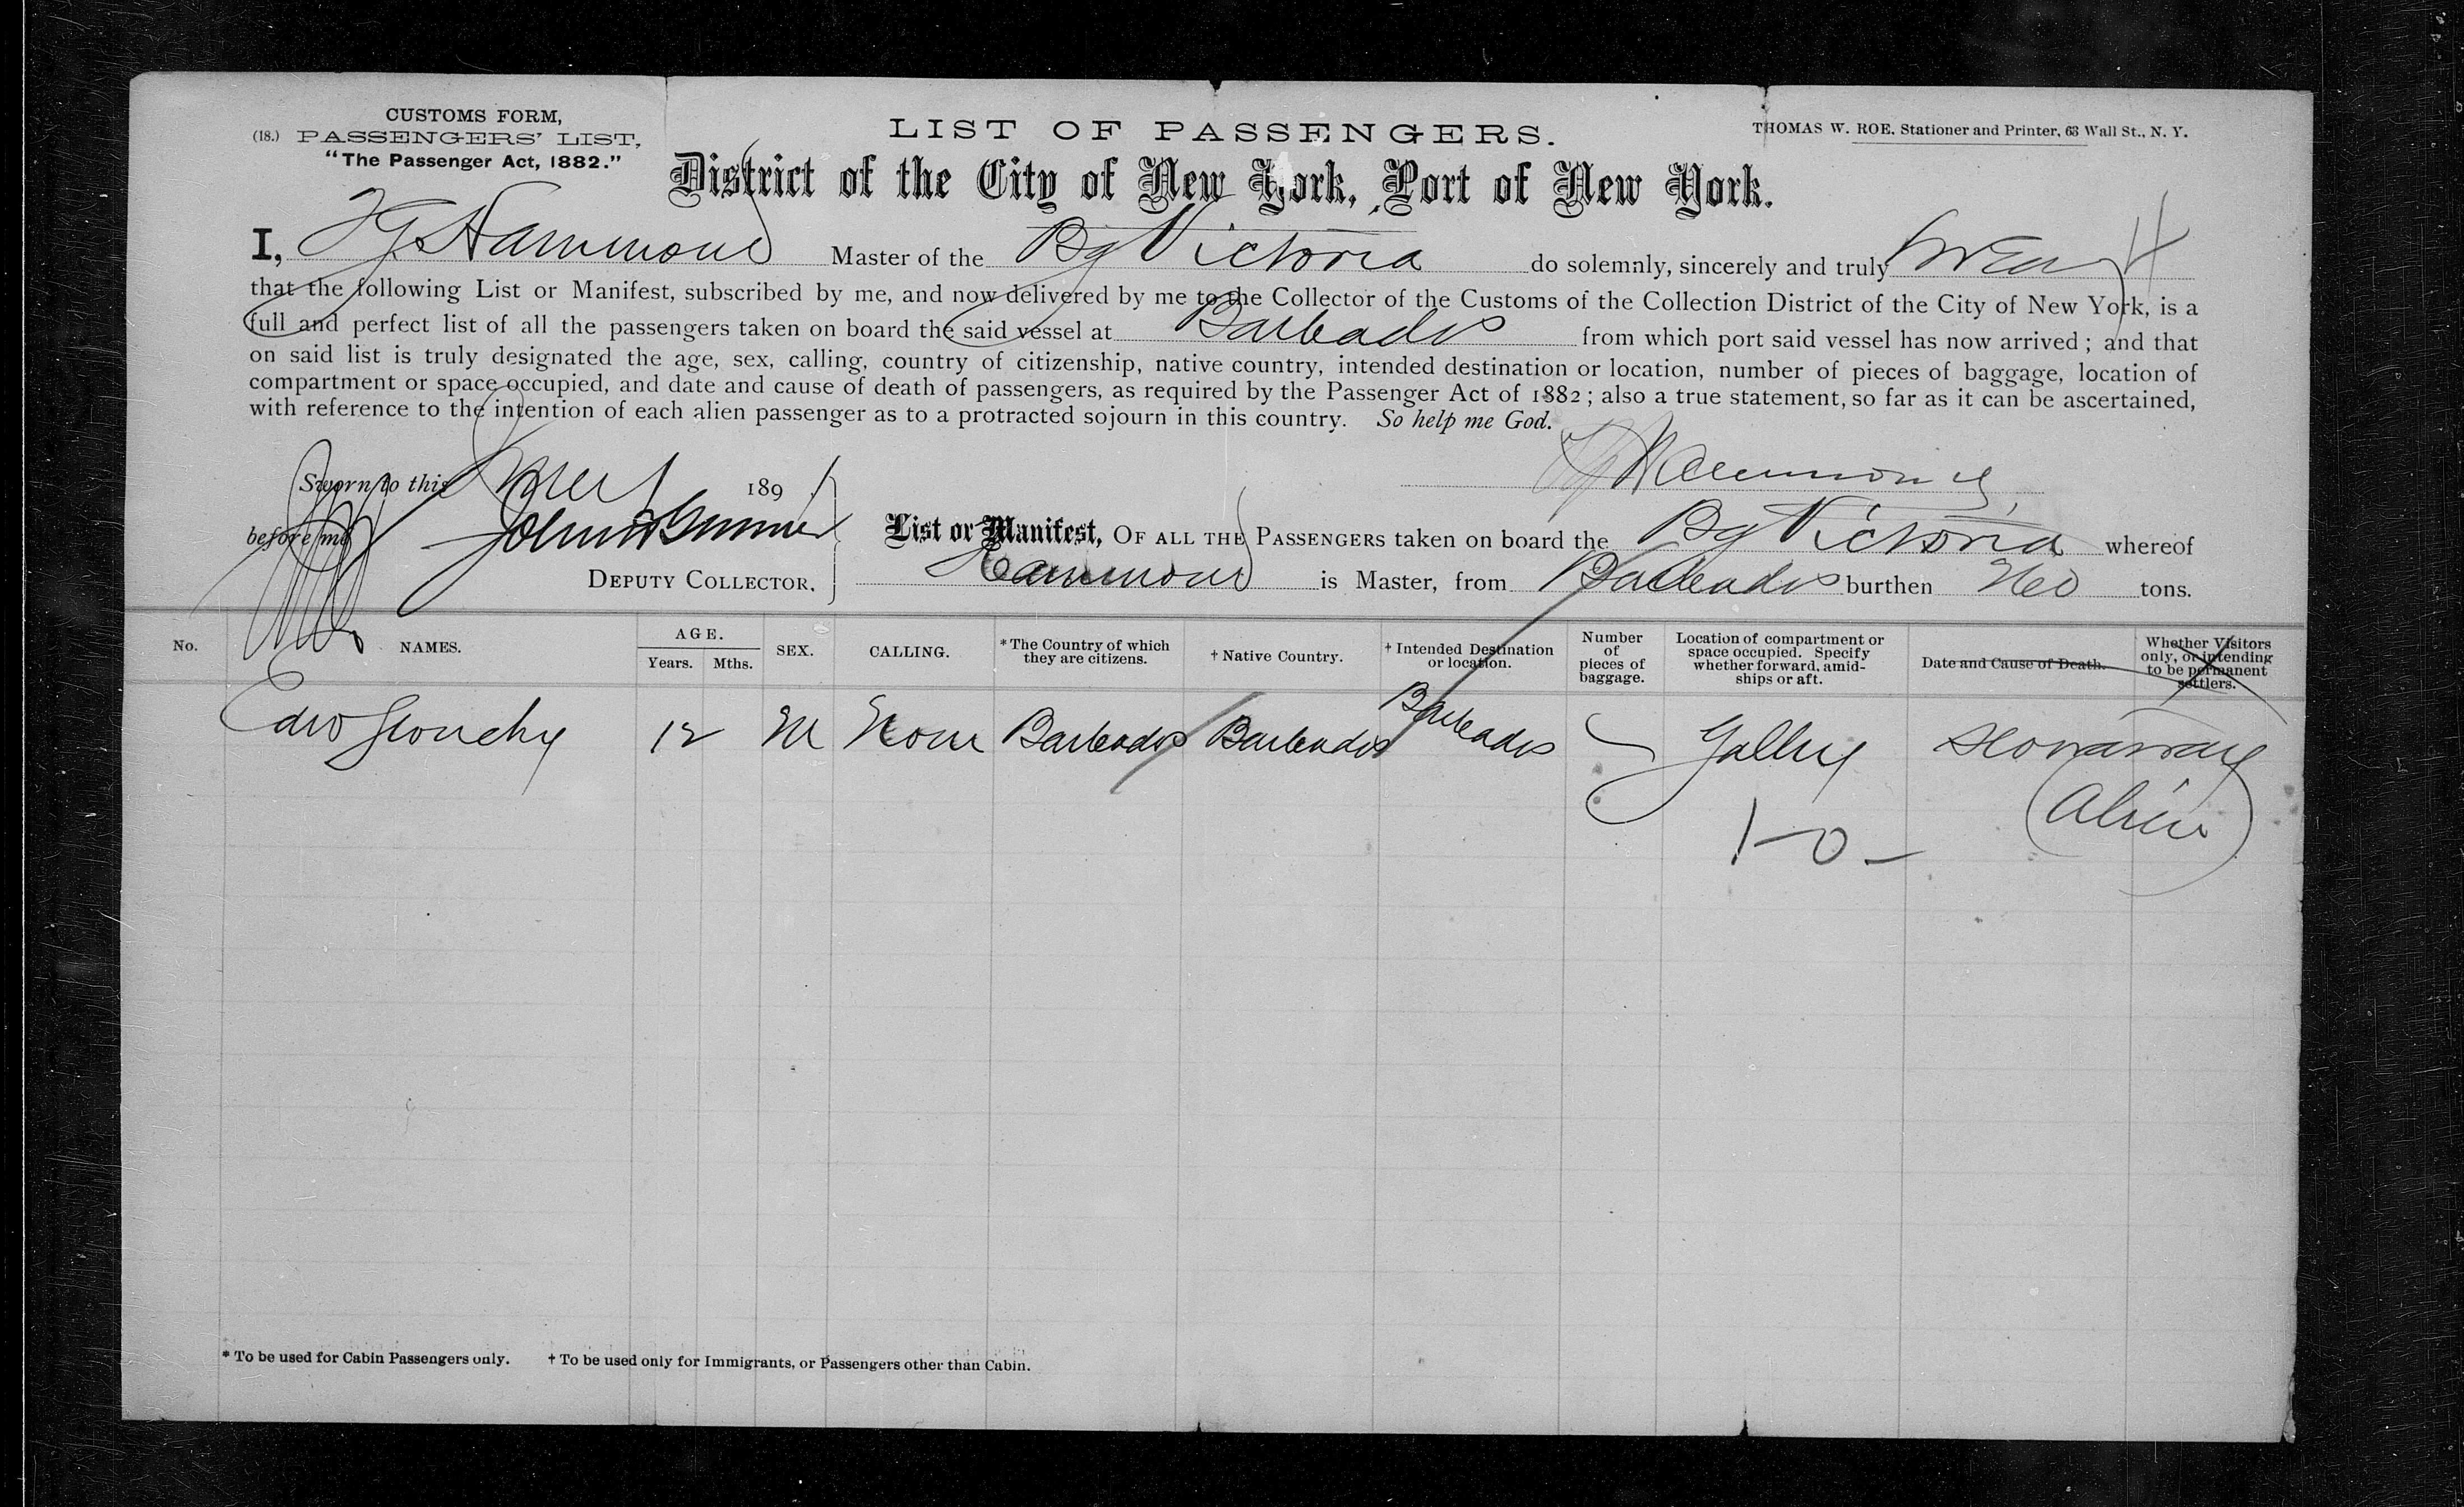 CUSTOMS FORM,
(18.) PASSENGERS' LIST,
"The Passenger Act, 1882."
LIST OF PASSENGERS.
THOMAS W. ROE. Stationer and Printer, 63 Wall St., N. Y.
District of the City of New York, Port of New York.
I, Hammond Master of the Bg Victoria do solemnly, sincerely and truly swear
that the following List or Manifest, subscribed by me, and now delivered by me to the Collector of the Customs of the Collection District of the City of New York, is a
full and perfect list of all the passengers taken on board the said vessel at Barbados from which port said vessel has now arrived; and that
on said list is truly designated the age, sex, calling, country of citizenship, native country, intended destination or location, number of pieces of baggage, location of
compartment or space occupied, and date and cause of death of passengers, as required by the Passenger Act of 1882; also a true statement, so far as it can be ascertained,
with reference to the intention of each alien passenger as to a protracted sojourn in this country. So help me God.
Hammond
Sworn to this 189
before me John
DEPUTY COLLECTOR.
List or Manifest, OF ALL THE PASSENGERS taken on board the Bg Victoria whereof
Hammond is Master, from Barbados burthen tons.
No. NAMES. AGE. Years. Mths. SEX. CALLING. * The Country of which they are citizens. † Native Country. † Intended Destination or location. Number of pieces of baggage. Location of compartment or space occupied. Specify whether forward, amidships or aft. Date and Cause of Death. Whether Visitors only, or intending to be permanent settlers.
Edw 12 M None Barbados Barbados Barbados Galley Stowaway
(Alien)
1-0-
* To be used for Cabin Passengers only. † To be used only for Immigrants, or Passengers other than Cabin.